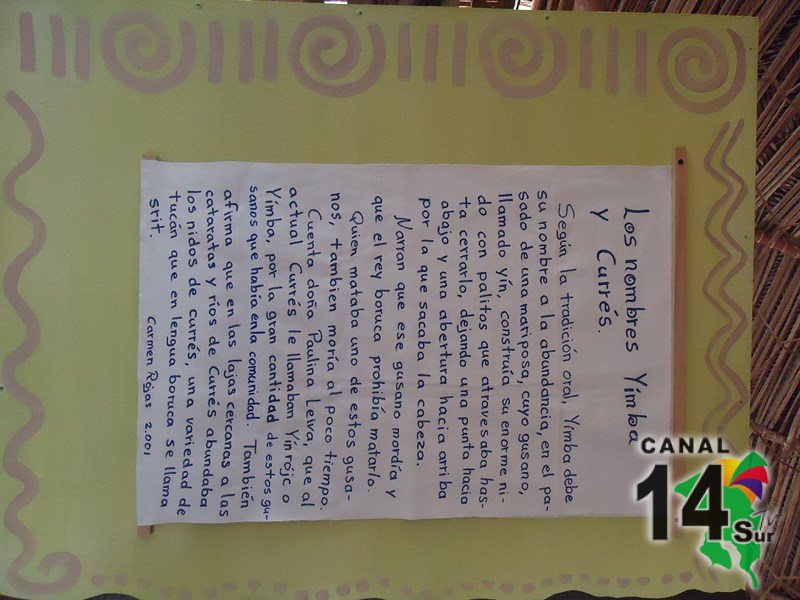 Los nombres Yímba
y Currés.
Según la tradición oral Yimba debe
su nombre a la abundancia, en el pa-
sado de una mariposa, cuyo gusano,
llamado yín, construía su enorme ni-
do con palitos que atravesaba has-
ta cerrarlo, dejando una punta hacia
abajo y una abertura hacia arriba
por la que sacaba la cabeza.
Narran que ese gusano mordía y
que el rey boruca prohibía matarlo.
Quien mataba uno de estos gusa-
nos, tambien moría al poco tiempo.
Cuenta doña Paulina Leiva, que al
actual Currés le llamaban Yinrójc o
Yimba, por la gran cantidad de estos gu-
sanos que había en la comunidad. También
afirma que en las lajas cercanas a las
cataratas y ríos de Currés abundaba
los nidos de currés, una variedad de
tucán que en lengua boruca se llama
srit.
Carmen Rójas 2.001
CANAL
14
Tv
Sur